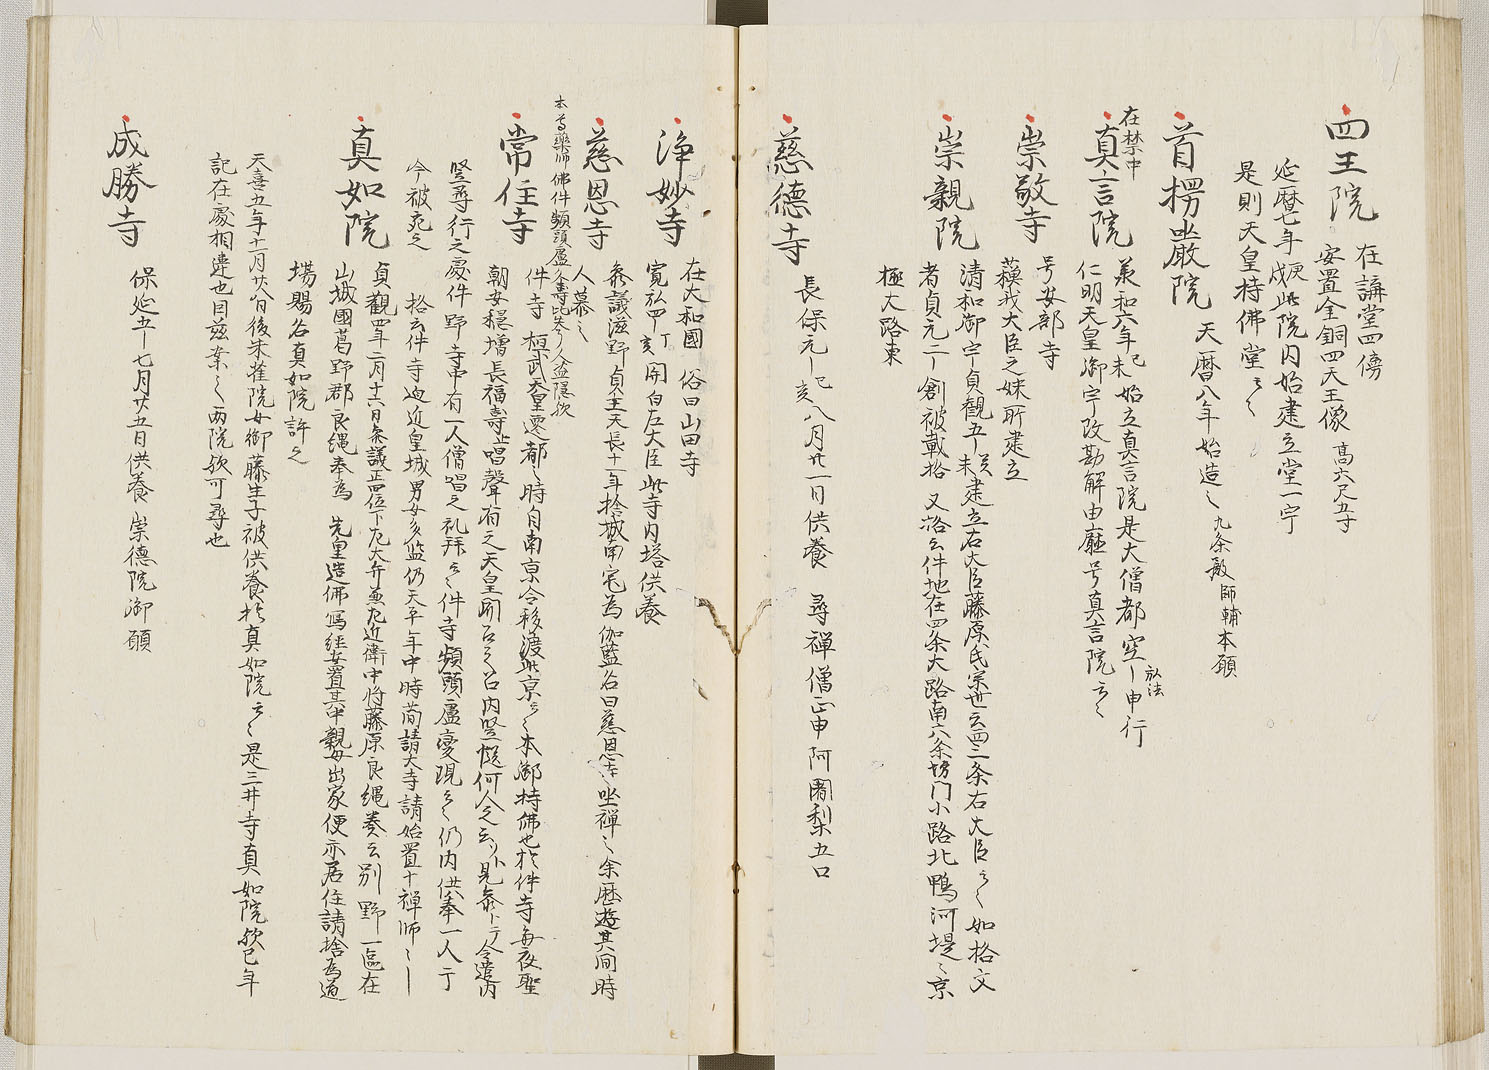 四王院 在講堂四傍
安置金銅四天王像 高六尺五寸
延暦七年 庚戌 此院内始建立堂一宇
是則天皇持佛堂云々
首楞嚴院 天暦八年始造之 九条殿師輔本願
在禁中
真言院 承和六年 己未 始立真言院是大僧都空ー申行 弘法
仁明天皇御宇改勘解由廰号真言院云々
崇敬寺 号安部寺
大臣之妹所建立
崇親院 清和御宇貞観五ー 癸未 建立右大臣藤原氏宗世云西三条右大臣云々如格文
者貞元二ー創被載格 又洛云件地在四条大路南六条坊門小路北鴨河堤之京
極大路東
慈徳寺 長保元ー 己亥 八月廿一日供養 尋禅僧正申阿闍梨五口
浄妙寺 在大和國 俗曰山田寺
寛弘四ー 丁亥 関白左大臣此寺内塔供養
慈恩寺 参議滋野貞主天長十一年捨城南宅為伽藍名曰慈恩寺坐禅之余歴遊其間時
人慕之
本尊藥師佛件頻頭盧
常住寺 件寺 桓武天皇遷都之時自南京令移渡此京云々本御持佛也於件寺毎夜聖
朝安穏増長福壽止唱聲有之天皇聞召之召内竪慥何人之云ツル見参ト天令遣内
竪尋行之處件野寺中有一人僧唱之礼拜云々件寺頻頭盧変現云々仍内供奉一人于
今被宛之 格云件寺迫近皇城男女亥監仍天平年中時簡請大寺請始置十禅師之ー
真如院 貞觀四年二月十六日参議正四位下左大弁兼左近衛中将藤原良縄奏云別野一區在
山城國葛野郡良縄奉為 先皇造佛寫経安置其中親母出家便亦居住請捨為道
場賜名真如院許之
天喜五年十二月廿八日後朱雀院女御藤生子被供養於真如院云々是三井寺真如院欤已年
記在處相違也因茲案之両院欤可尋也
成勝寺 保延五ー七月廿五日供養 崇徳院御願